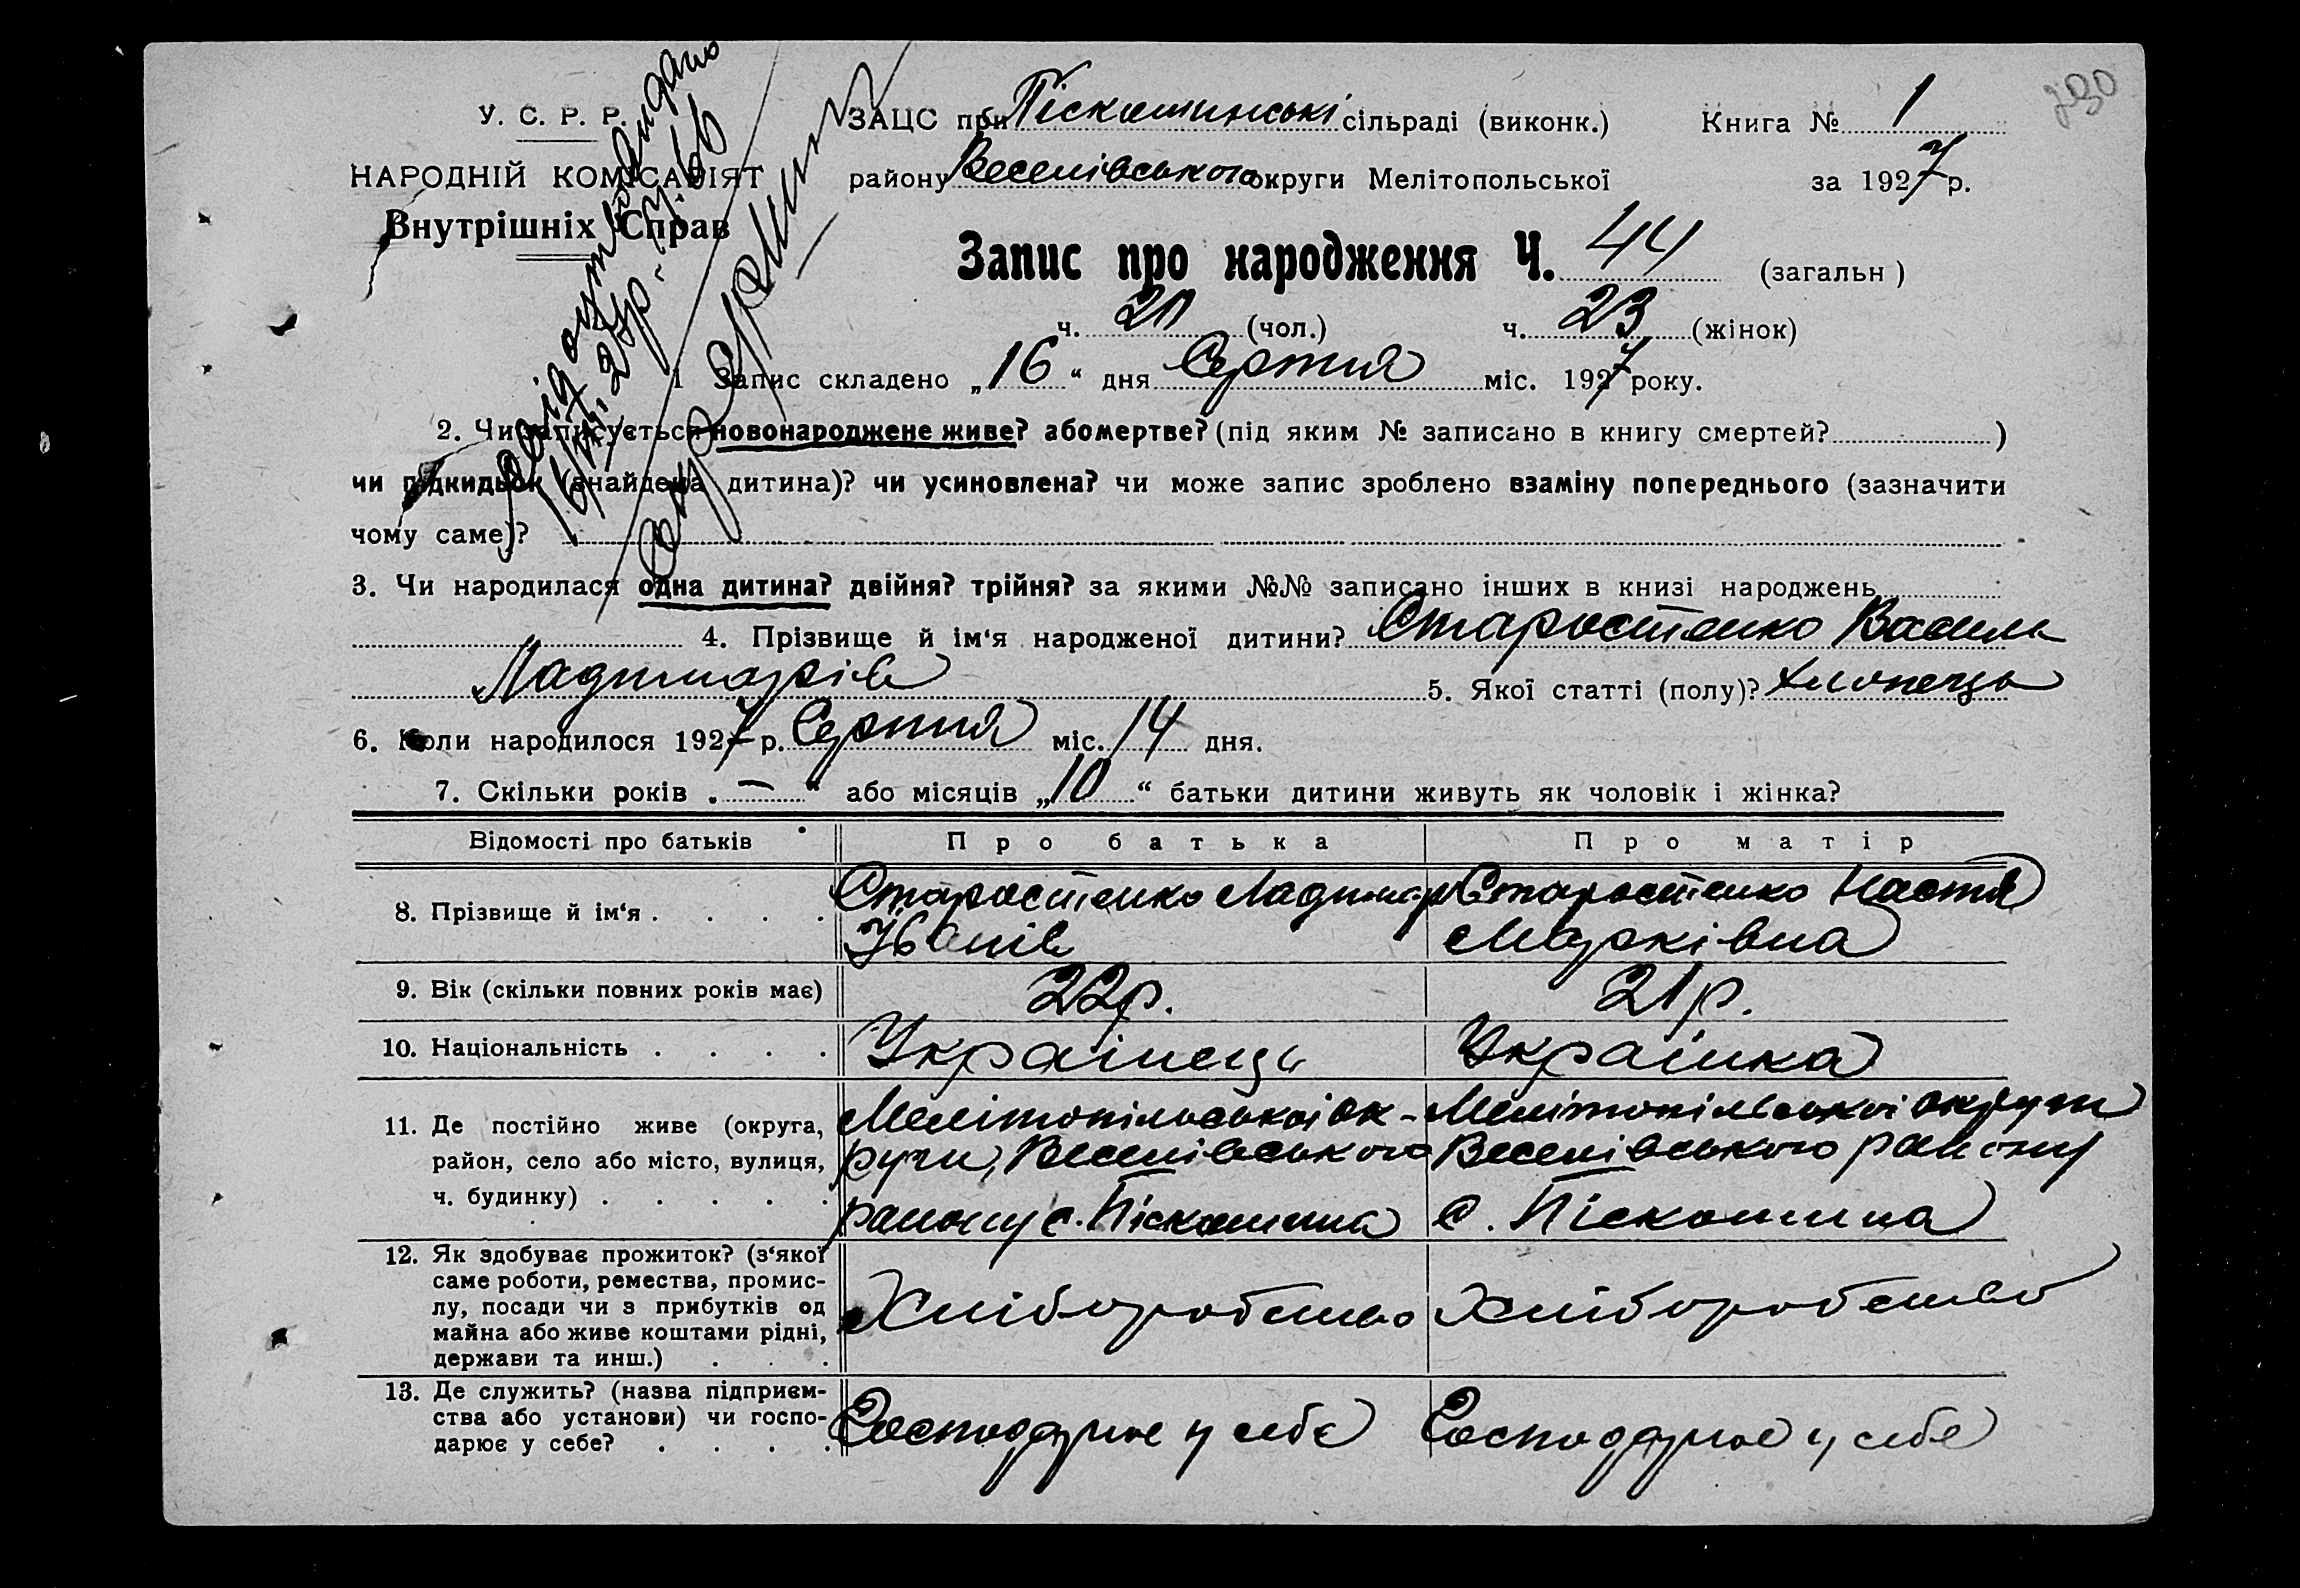 У. С. Р. Р.
НАРОДНІЙ КОМІСАРІЯТ
Внутрішніх Справ
Свідоцтво видано
16/VIII 27р. ч. 66
ЗАЦС при Піскошинські сільраді (виконк.) Книга № 1
району Веселівського округи Мелітопольської за 1927 р.
Запис про народження Ч. 44 (загальн)
ч. 21 (чол.) ч. 23 (жінок)
1 Запис складено „16“ дня Серпня міс. 1927 року.
2. Чи записується новонароджене живе? або мертве? (під яким № записано в книгу смертей? )
чи підкидьок (знайдена дитина)? чи усиновлена? чи може запис зроблено взаміну попереднього (зазначити
чому саме)?
3. Чи народилася одна дитина? двійня? трійня? за якими №№ записано інших в книзі народжень
4. Прізвище й ім‘я народженої дитини? Старостенко Василь
Ладимирів 5. Якої статті (полу)? хлопець
6. Коли народилося 1927 р. Серпня міс. 14 дня.
7. Скільки років „—“ або місяців „10“ батьки дитини живуть як чоловік і жінка?
Відомості про батьків Про батька Про матір
8. Прізвище й ім‘я . . . . Старостенко Ладимир Старостенко Настя
Іванів Марківна
9. Вік (скільки повних років має) 22р. 21р.
10. Національність . . . . Українець Українка
11. Де постійно живе (округа, Мелітопільської ок- Мелітопільської округи
район, село або місто, вулиця, руги, Веселівського Веселівського району
ч. будинку) . . . . . району с. Піскошина с. Піскошина
12. Як здобуває прожиток? (з‘якої
саме роботи, ремества, промис-
лу, посади чи з прибутків од Хліборобство Хліборобство
майна або живе коштами рідні,
держави та инш.) . . .
13. Де служить? (назва підприєм-
ства або установи) чи госпо- Господарює у себе Господарює у себе
дарює у себе? . . . .